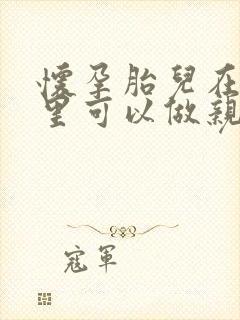 懷孕胎兒在
里可以做親
寇軍